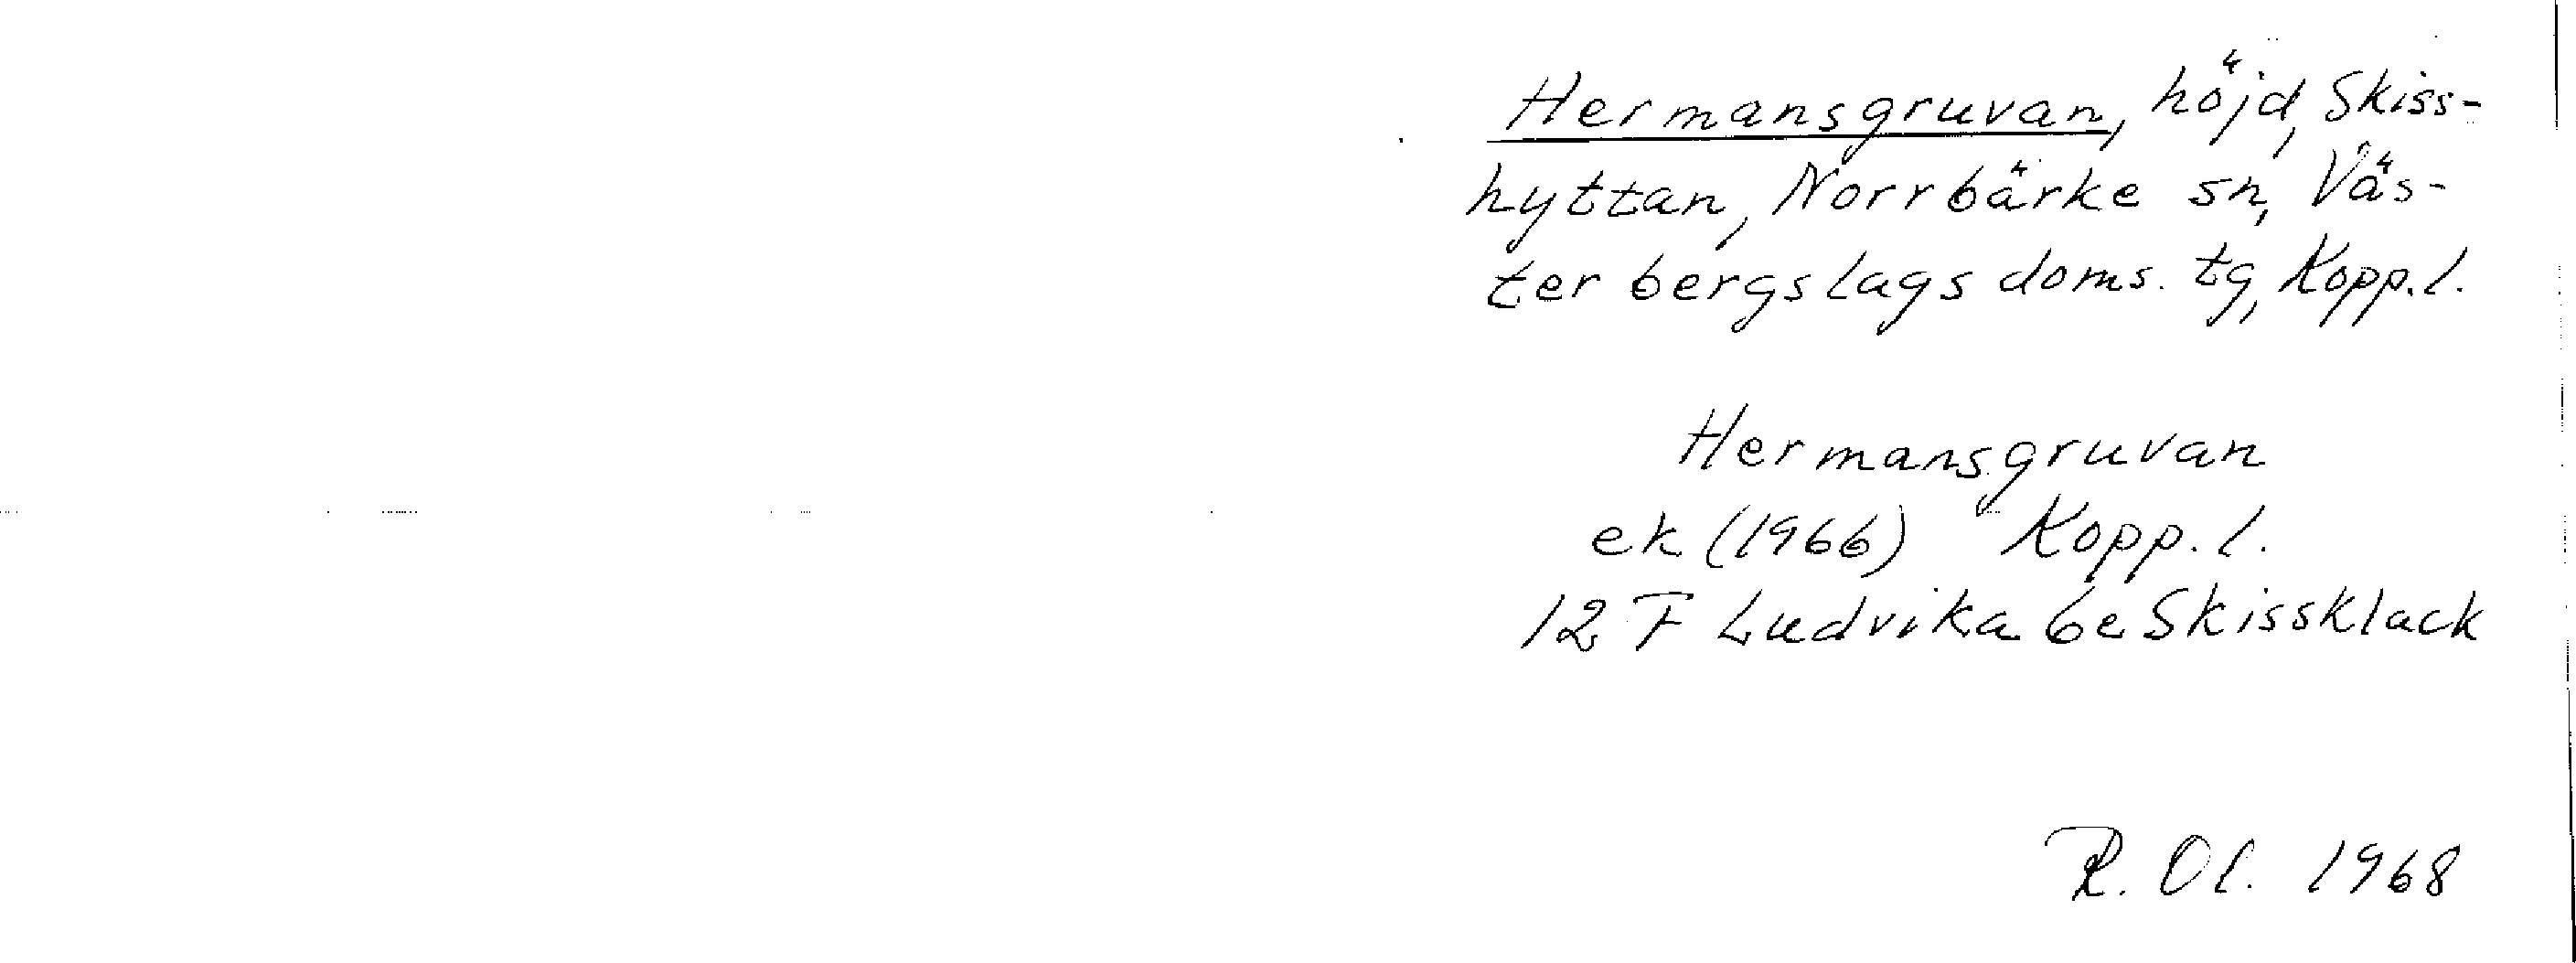 Hermansgruvan, höjd, Skiss-
hyttan, Norrbärke sn, Väs-
terbergslags doms. tg, Kopp. l.
Hermansgruvan
ek (1966) Kopp. l.
12 F Ludvika 6e Skissklack
R. Ol. 1968